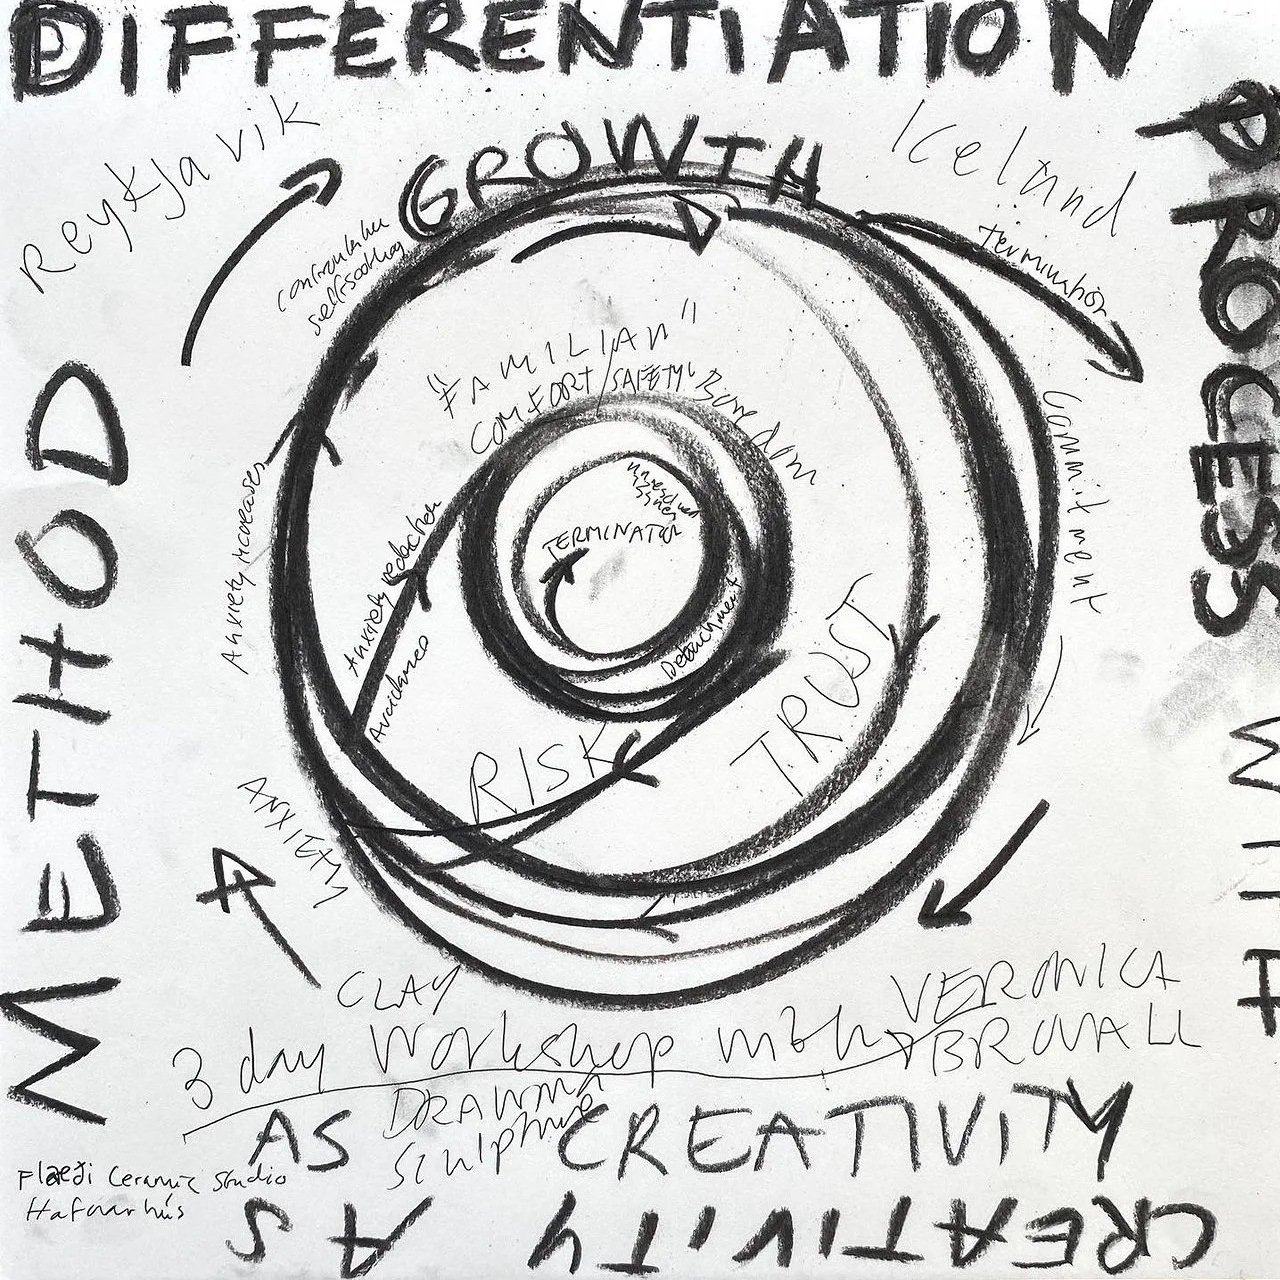 DIFFERENTIATION
PROCESS WITH
CREATIVITY AS
METHOD
Reykjavik
Iceland
GROWTH
self-soothing
Termination
Commitment
"FAMILIAR"
COMFORT/SAFETY
Boredom
unresolved
issues
TERMINATION
Detachment
Anxiety increases
Anxiety reduction
Avoidance
TRUST
RISK
ANXIETY
CLAY
3 day Workshop with
VERONICA
BROVALL
DRAWING
Sculpture
AS CREATIVITY
Flæði Ceramic Studio
Hafnarhús